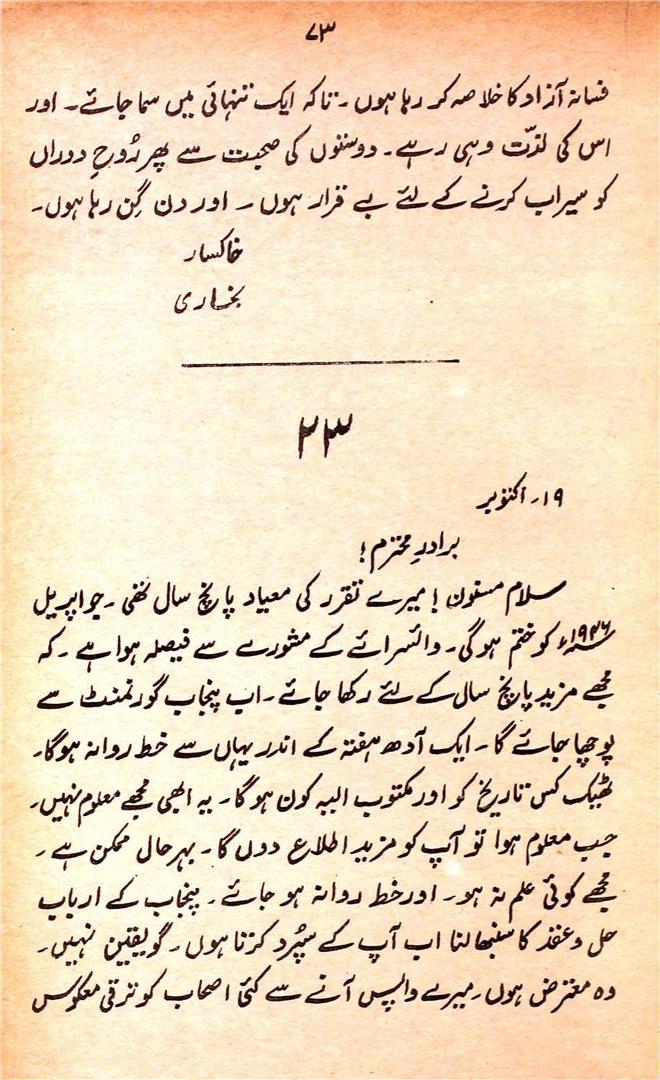 ۷۳
فسانہ آزاد کا خلاصہ کر رہا ہوں ۔ تاکہ ایک تنہائی میں سما جائے ۔ اور
اس کی لذّت وہی رہے ۔ دوستوں کی صحبت سے پھر رُوحِ دوراں
کو سیراب کرنے کے لئے بے قرار ہوں ۔ اور دن گِن رہا ہوں ۔
خاکسار
بخاری
۲۳
۱۹ ۔ اکتوبر
برادرِ محترم !
سلام مسنون ! میرے تقرر کی معیاد پانچ سال تھی ۔ جو اپریل
۱۹۴۶ء کو ختم ہوگی ۔ وائسرائے کے مشورے سے فیصلہ ہوا ہے ۔ کہ
مجھے مزید پانچ سال کے لئے رکھا جائے ۔ اب پنجاب گورنمنٹ سے
پوچھا جائے گا ۔ ایک آدھ ہفتہ کے اندر یہاں سے خط روانہ ہوگا ۔
ٹھیک کس تاریخ کو اور مکتوب الیہ کون ہو گا ۔ یہ ابھی مجھے معلوم نہیں ۔
جب معلوم ہوا تو آپ کو مزید اطلاع دوں گا ۔ بہرحال ممکن ہے ۔
مجھے کوئی علم نہ ہو ۔ اور خط روانہ ہو جائے ۔ پنجاب کے ارباب
حل و عقد کا سنبھالنا اب آپ کے سپُرد کرتا ہوں ۔ گو یقین نہیں ۔
وہ معترض ہوں ۔ میرے واپس آنے سے کئی اصحاب کو ترقی معکوس